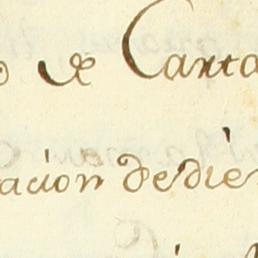 de Canta
acion de die